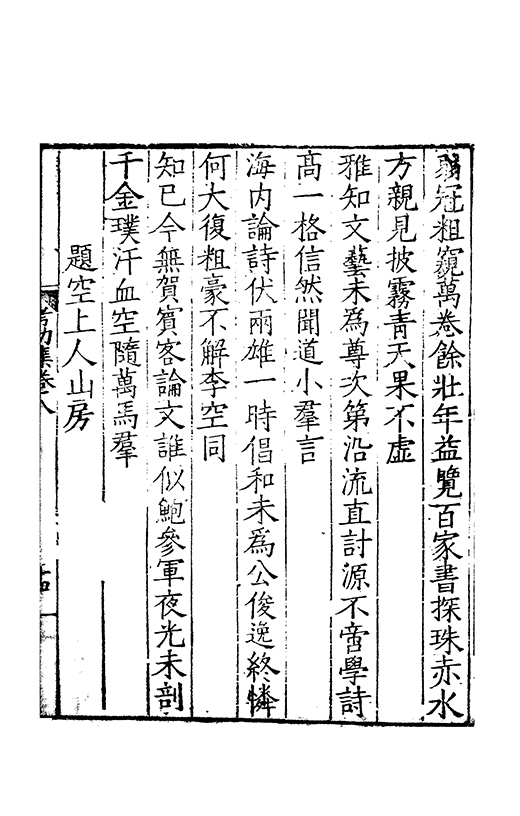 弱冠粗窺萬卷餘壯年益覽百家書探珠赤水
方親見披霧青天果不虛
雅知文藝未為尊次第沿流直討源不啻學詩
高一格信然聞道小羣言
海内論詩伏兩雄一時倡和未為公俊逸終憐
何大復粗豪不解李空同
知已今無賀賓客論文誰似鮑參軍夜光未剖
千金璞汗血空隨萬馬羣
題空上人山房
集卷八